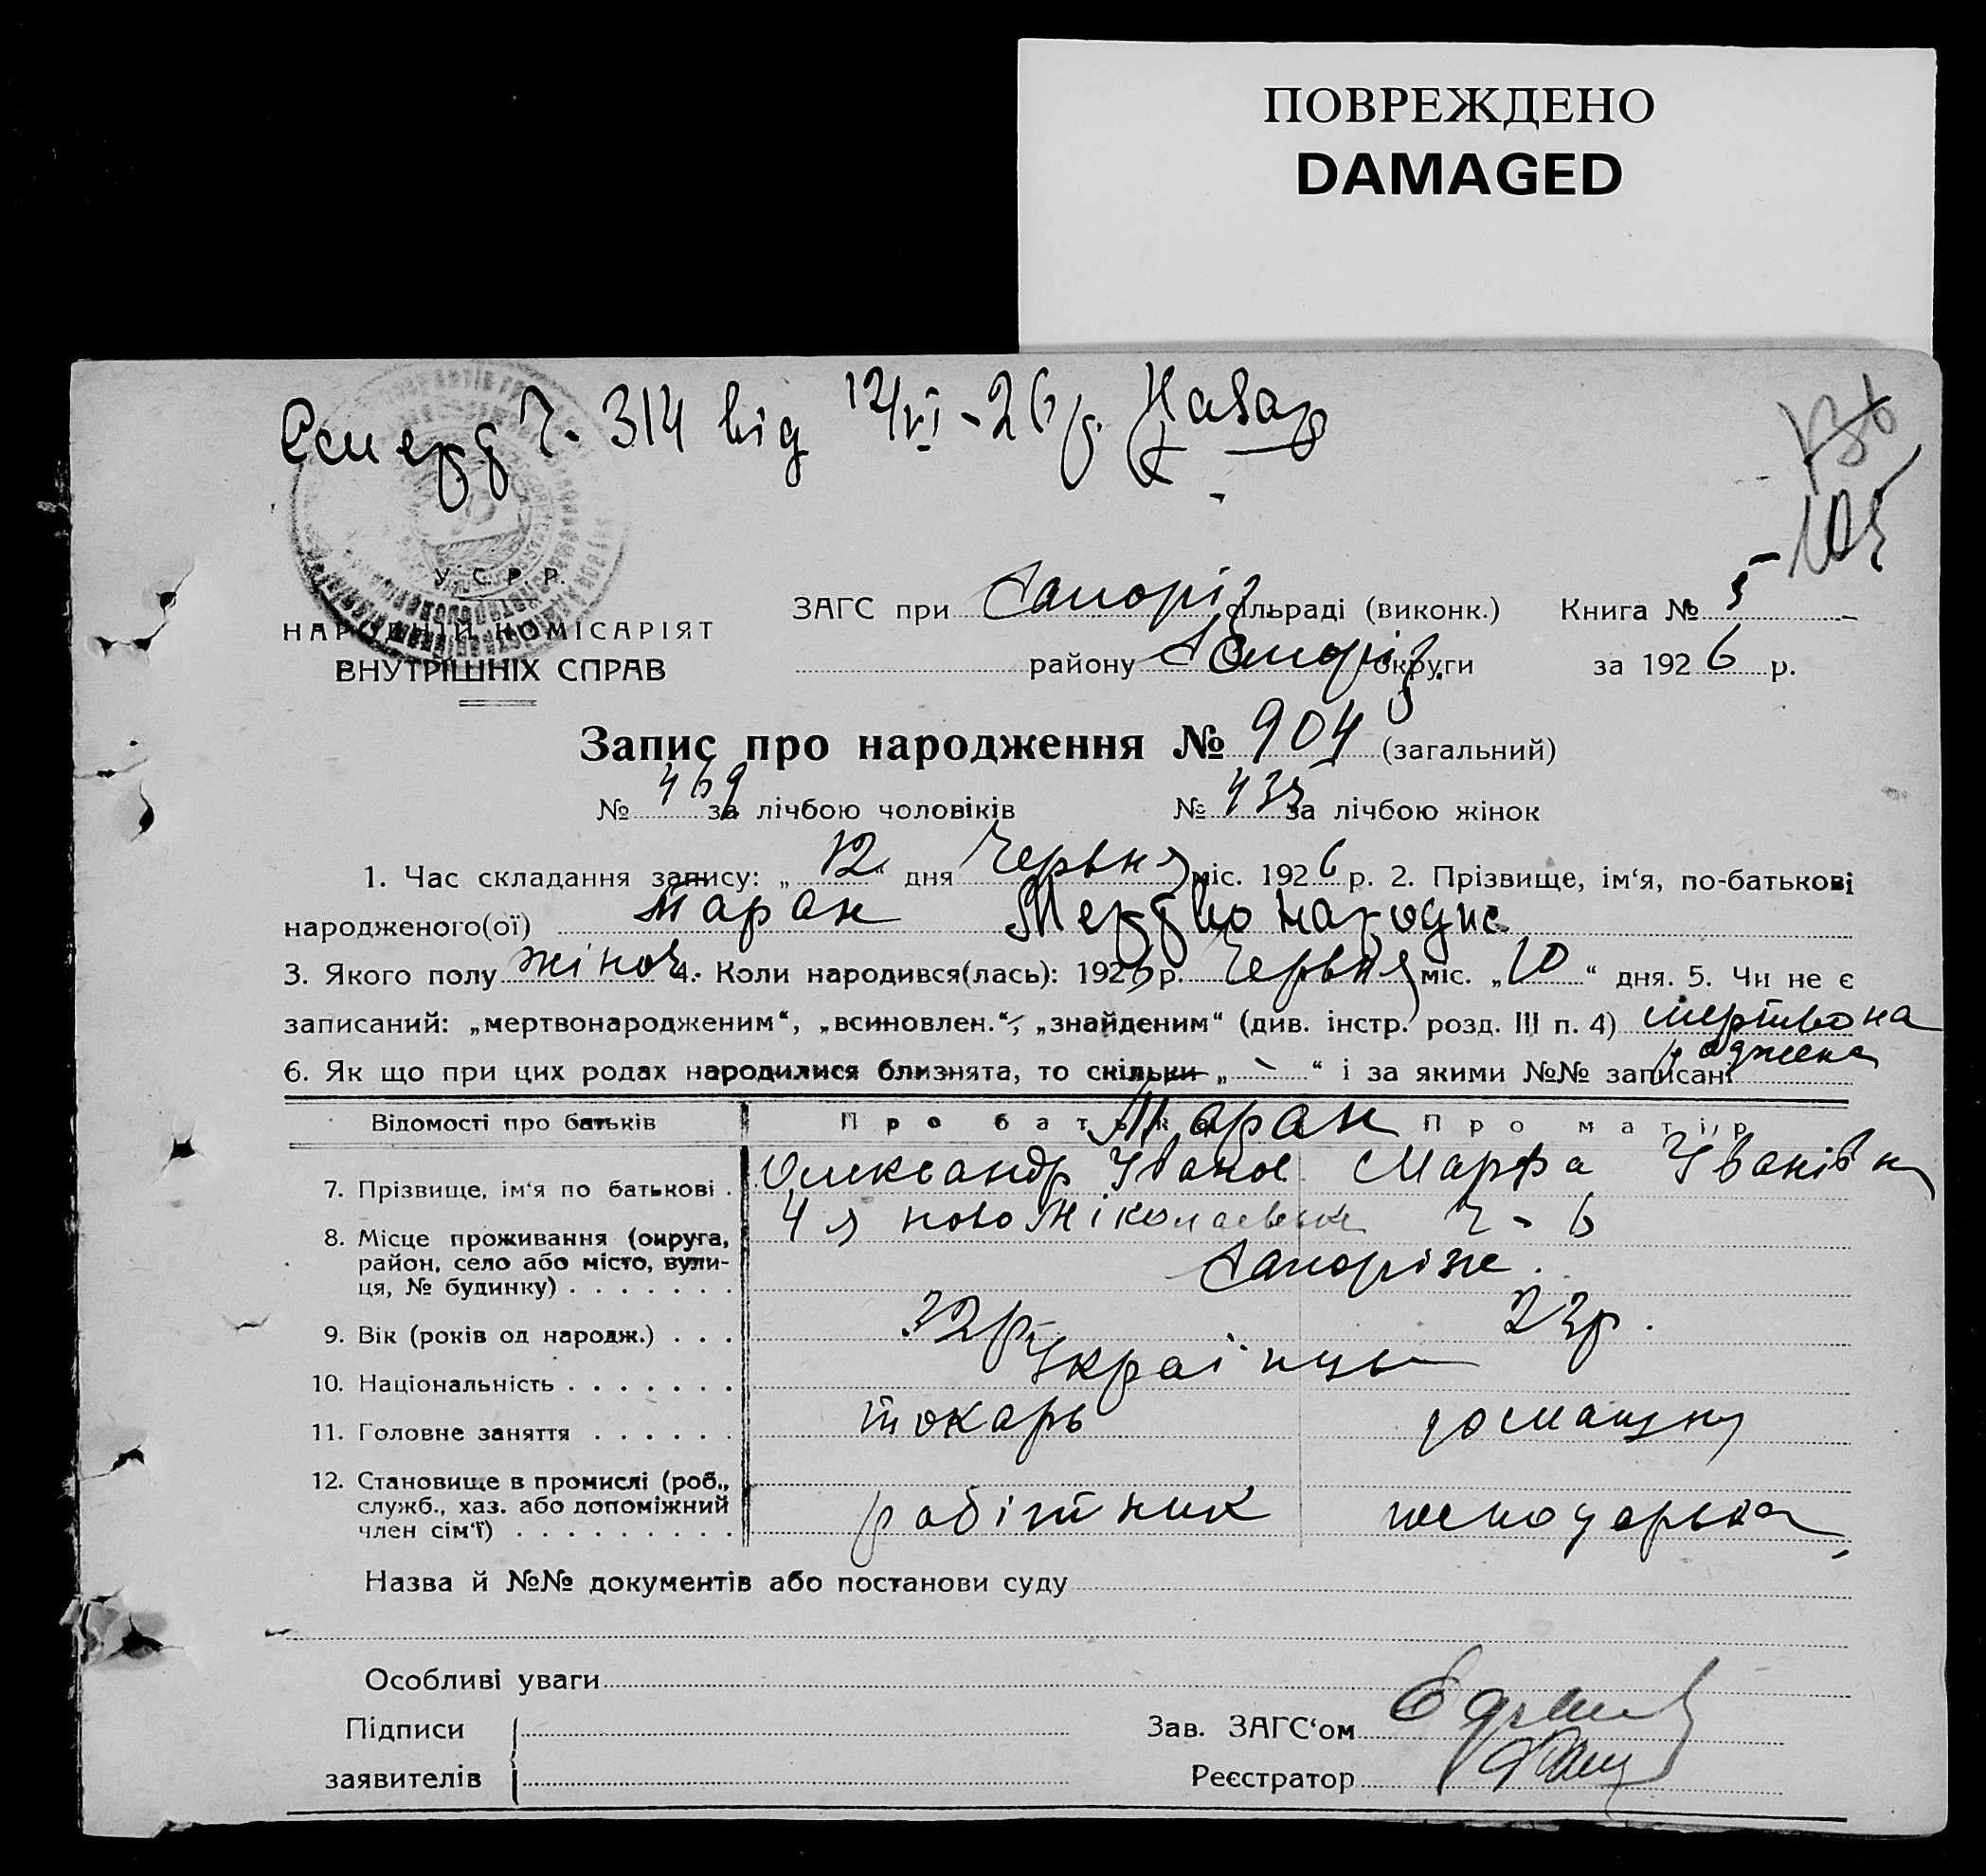 ПОВРЕЖДЕНО
DAMAGED
Є смерд Ч. 314 від 12/VI-26 р.
У. С. Р. Р.
НАРОДНІЙ КОМІСАРІЯТ
ВНУТРІШНІХ СПРАВ
ЗАГС при Запоріз. сільраді (виконк.) Книга № 5
району Запоріз. округи за 1926 р.
105
Запис про народження № 904 (загальний)
№ 469 за лічбою чоловіків № 435 за лічбою жінок
1. Час складання запису: „12“ дня Червня міс. 1926 р. 2. Прізвище, ім‘я, по-батькові
народженого(ої) Таран Мертво народж.
3. Якого полу жіноч. 4. Коли народився(лась): 1926 р. Червня міс. „10“ дня. 5. Чи не є
записаний: „мертвонародженим“, „всиновлен.“, „знайденим“ (див. інстр. розд. III п. 4) мертвона
роджена
6. Як що при цих родах народилися близнята, то скільки „-“ і за якими №№ записані
Відомості про батьків Про батька Про матір
Таран
7. Прізвище, ім‘я по батькові . Олександр Іванов. Марфа Іванівна
8. Місце проживання (округа, район, село або місто, вули- ця, № будинку) . . . . . . . 4 я ново Миколаевска Ч - 6
Запоріже.
9. Вік (років од народж.) . . . 32 р. 22 р.
10. Національність . . . . . . . Українці
11. Головне заняття . . . . . . токарь домашня
12. Становище в промислі (роб., служб., хаз. або допоміжний член сім‘ї) . . . . . . . . . робітник господарька
Назва й №№ документів або постанови суду
Особливі уваги
Підписи
заявителів
Зав. ЗАГС‘ом
Реєстратор